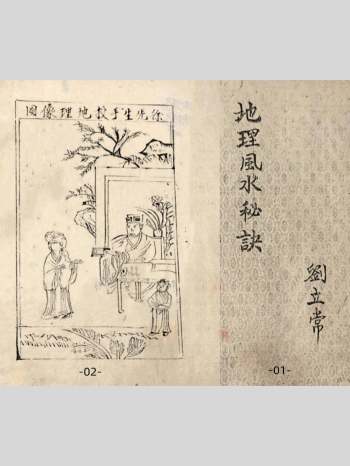 地理風水秘訣
劉立常
-01-
徐先生手教地理像圖
-02-